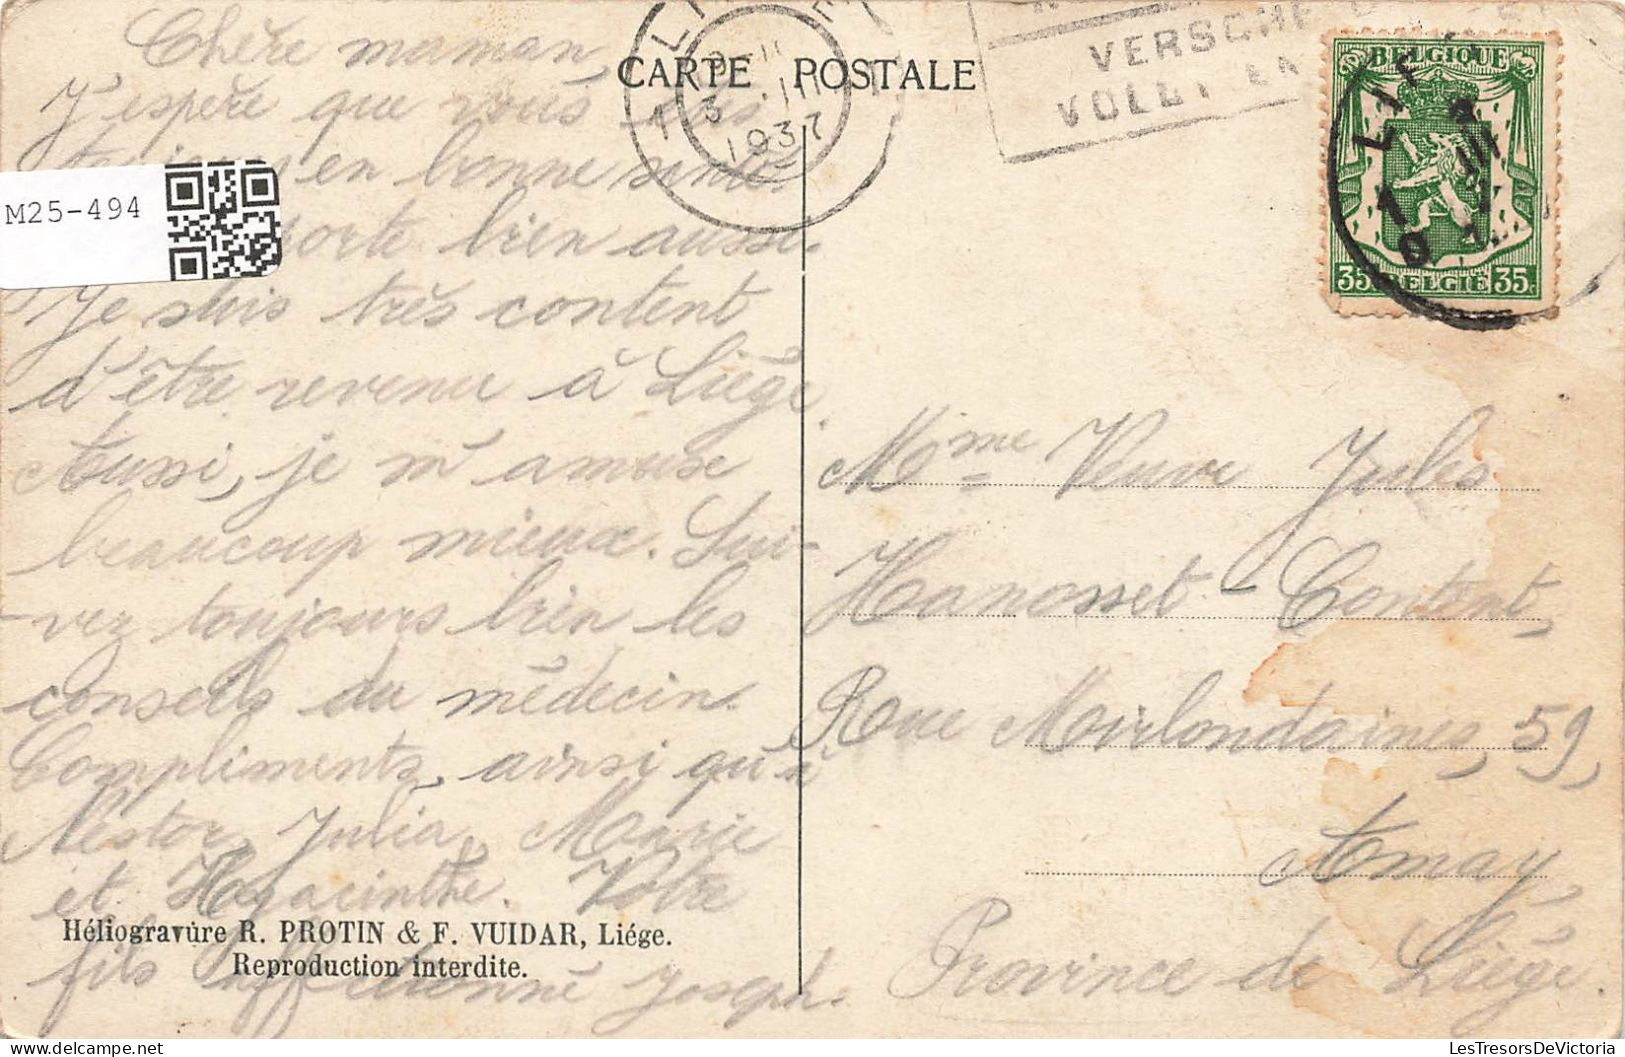 Chère maman,
J'espère que vous êtes
toujours en bonne santé.
porte bien aussi.
Je suis très content
d'être revenu à Liége.
Aussi, je m'amuse
beaucoup mieux. Sui-
-vez toujours bien les
conseils du médecin.
Compliments, ainsi qu'à
Nestor, Julia, Marie
et Hyacinthe. Votre
fils affectionné Joseph.
Héliogravure R. PROTIN & F. VUIDAR, Liége.
Reproduction interdite.
M25-494
CARTE POSTALE
1
3 III
1937
VERSCHE
VOLLE
BELGIQUE
35 BELGIE 35
Mme Veuve Jules
Hanosset - Content,
Rue Mirlondaines, 59,
Amay,
Province de Liége.
LesTresorsDeVictoria